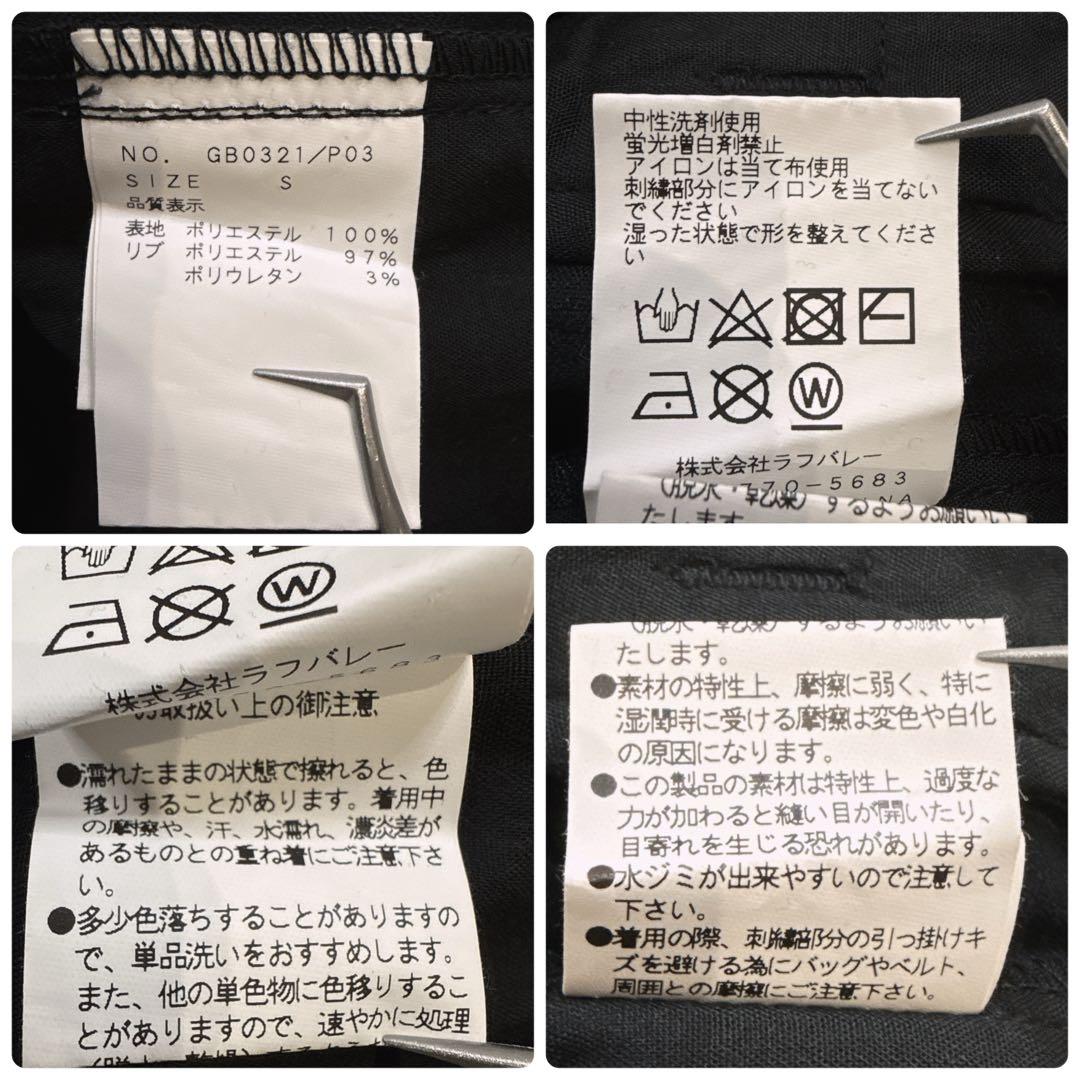 NO. GB0321/P03
SIZE S
品質表示
表地 ポリエステル 100%
リブ ポリエステル 97%
ポリウレタン 3%
中性洗剤使用
蛍光増白剤禁止
アイロンは当て布使用
刺繍部分にアイロンを当てない
でください
湿った状態で形を整えてくださ
い
W
株式会社ラフバレー
770-5683
(脱水・乾燥)するようお願いい
たします
W
株式会社ラフバレー
5683
お取扱い上の御注意
●濡れたままの状態で擦れると、色
移りすることがあります。着用中
の摩擦や、汗、水濡れ、濃淡差が
あるものとの重ね着にご注意下さ
い。
●多少色落ちすることがありますの
で、単品洗いをおすすめします。
また、他の単色物に色移りするこ
とがありますので、速やかに処理
(脱水・乾燥)するよう
(脱水・乾燥)するようお願いい
たします。
●素材の特性上、摩擦に弱く、特に
湿潤時に受ける摩擦は変色や白化
の原因になります。
●この製品の素材は特性上、過度な
力が加わると縫い目が開いたり、
目寄れを生じる恐れがあります。
●水ジミが出来やすいので注意して
下さい。
●着用の際、刺繍部分の引っ掛けキ
ズを避ける為にバッグやベルト、
周囲との摩擦にご注意下さい。